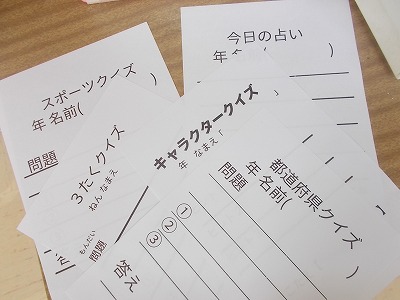 スポーツクイズ
年 名前( )
問題
今日の占い
年 )
3たくクイズ
ねん なまえ
もんだい
問題
キャラクタークイズ
年 なまえ (
都道府県クイズ
年 名前(
問題
①
②
③
答え